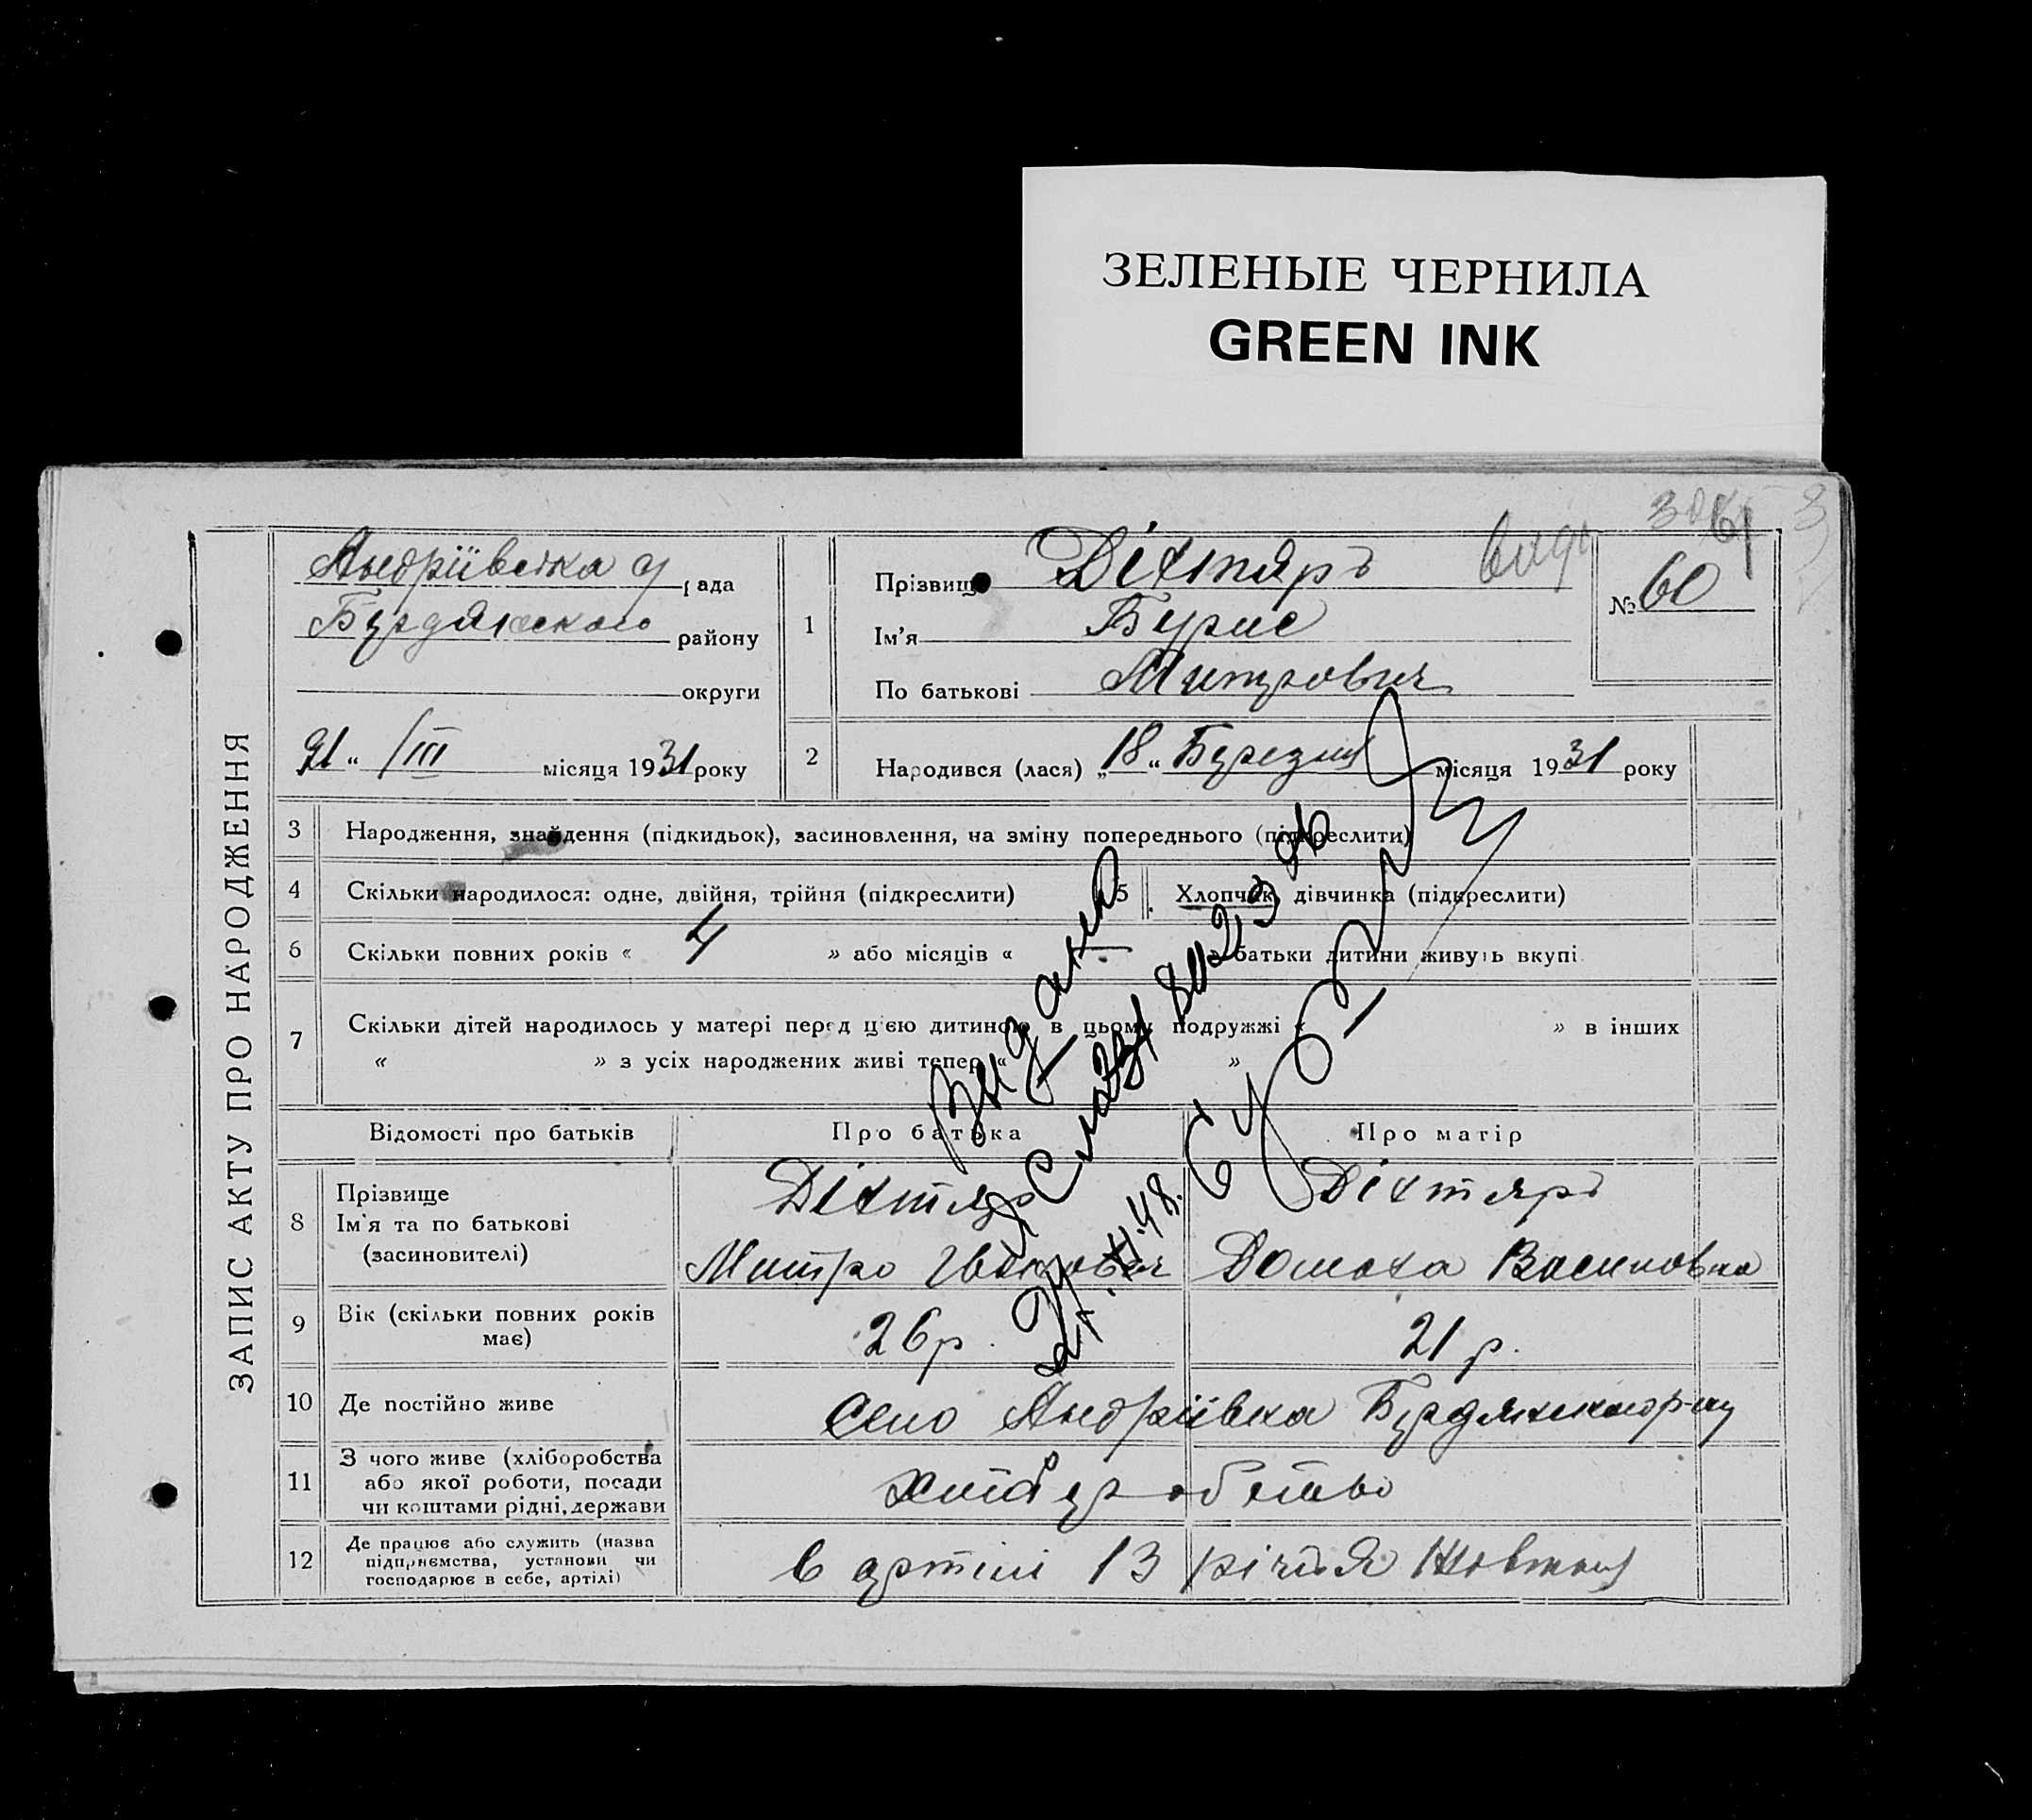 ЗЕЛЕНЫЕ ЧЕРНИЛА
GREEN INK
ЗАПИС АКТУ ПРО НАРОДЖЕННЯ
рада
Бурдянського району
округи
21 " /III місяця 1931 року
1
Прізвище Діхтяръ
Ім'я Бурис
По батькові Митрович
№ 60
61
2
Народився (лася) „18 " Березня місяця 1931 року
3 Народження, знайдення (підкидьок), засиновлення, на зміну попереднього (підкреслити)
4 Скільки народилося: одне, двійня, трійня (підкреслити)
5 Хлопчик, дівчинка (підкреслити)
6 Скільки повних років « 4 » або місяців « » батьки дитини живуть вкупі
7 Скільки дітей народилось у матері перед цією дитиною в цьому подружжі « » в інших
« » з усіх народжених живі тепер « »
Відомості про батьків
Про батька
Про матір
8 Прізвище
Ім'я та по батькові
(засиновителі)
Діхтяр
Митро Іванович
Діхтяръ
Домаха Василовна
9 Вік (скільки повних років має)
26 р.
21 р.
10 Де постійно живе
Село Андріївка Бурдянського р-ну
11 З чого живе (хліборобства
або якої роботи, посади
чи коштами рідні, держави
12 Де працює або служить (назва
підприємства, установи чи
господарює в себе, артілі)
в артілі 13 річчя Жовтня